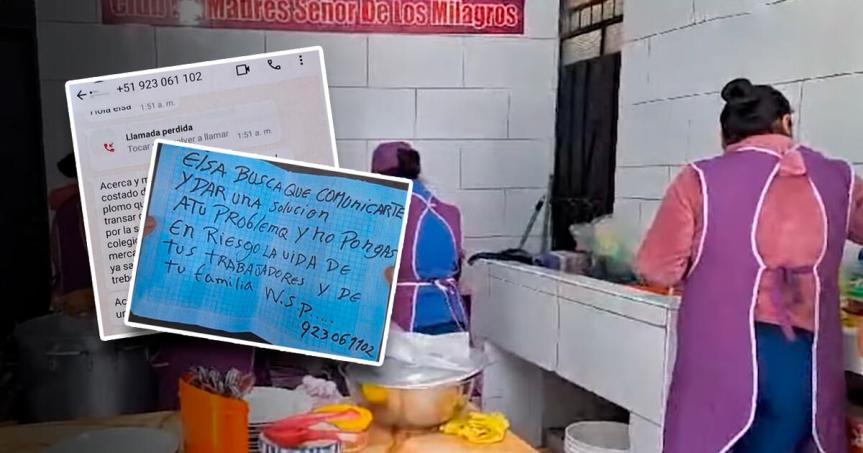 Club de Madres Señor De Los Milagros
+51 923 061 102
Hola elsa 1:51 a. m.
Llamada perdida
Tocar volver a llamar 1:51 a. m.
Acerca y m
costado d
plomo qu
transar c
por la s
colegi
merca
ya sa
treb
Ac
un
Elsa BUSCA QUE COMUNICARTE
Y DAR UNA Solucion
A TU PROBlemA y no PongAS
EN RiesgO LA VIDA DE
TUS TRABATADORES Y DE
Tu familia W.S.P....
923061102